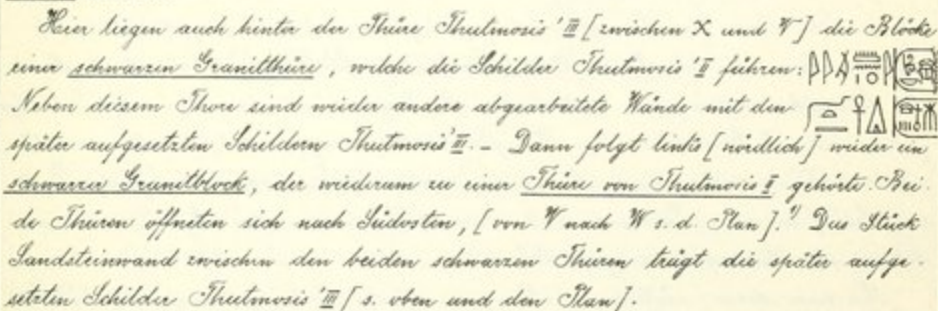 Hier liegen auch hinter der Thüre Thutmosis' III [zwischen X und V] die Blöcke
einer schwarzen Granitthüre, welche die Schilder Thutmosis' II führen:
Neben diesem Thore sind wieder andere abgearbeitete Wände mit den
später aufgesetzten Schildern Thutmosis' III. – Dann folgt links [nördlich] wieder ein
schwarzer Granitblock, der wiederum zu einer Thüre von Thutmosis II gehörte. Bei-
de Thüren öffneten sich nach Südosten, [von V nach W s. d. Plan].¹⁾ Das Stück
Sandsteinwand zwischen den beiden schwarzen Thüren trägt die später aufge-
setzten Schilder Thutmosis' III [s. oben und den Plan].